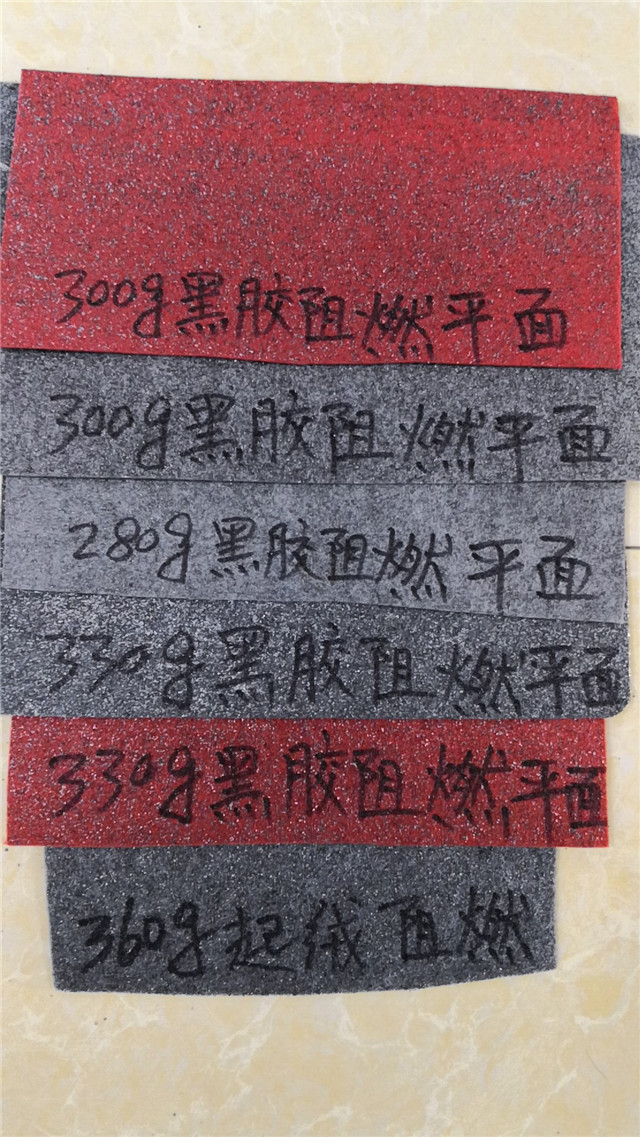 300g黑胶阻燃平面
300g黑胶阻燃平面
280g黑胶阻燃平面
330g黑胶阻燃平面
330g黑胶阻燃平面
360g起绒阻燃